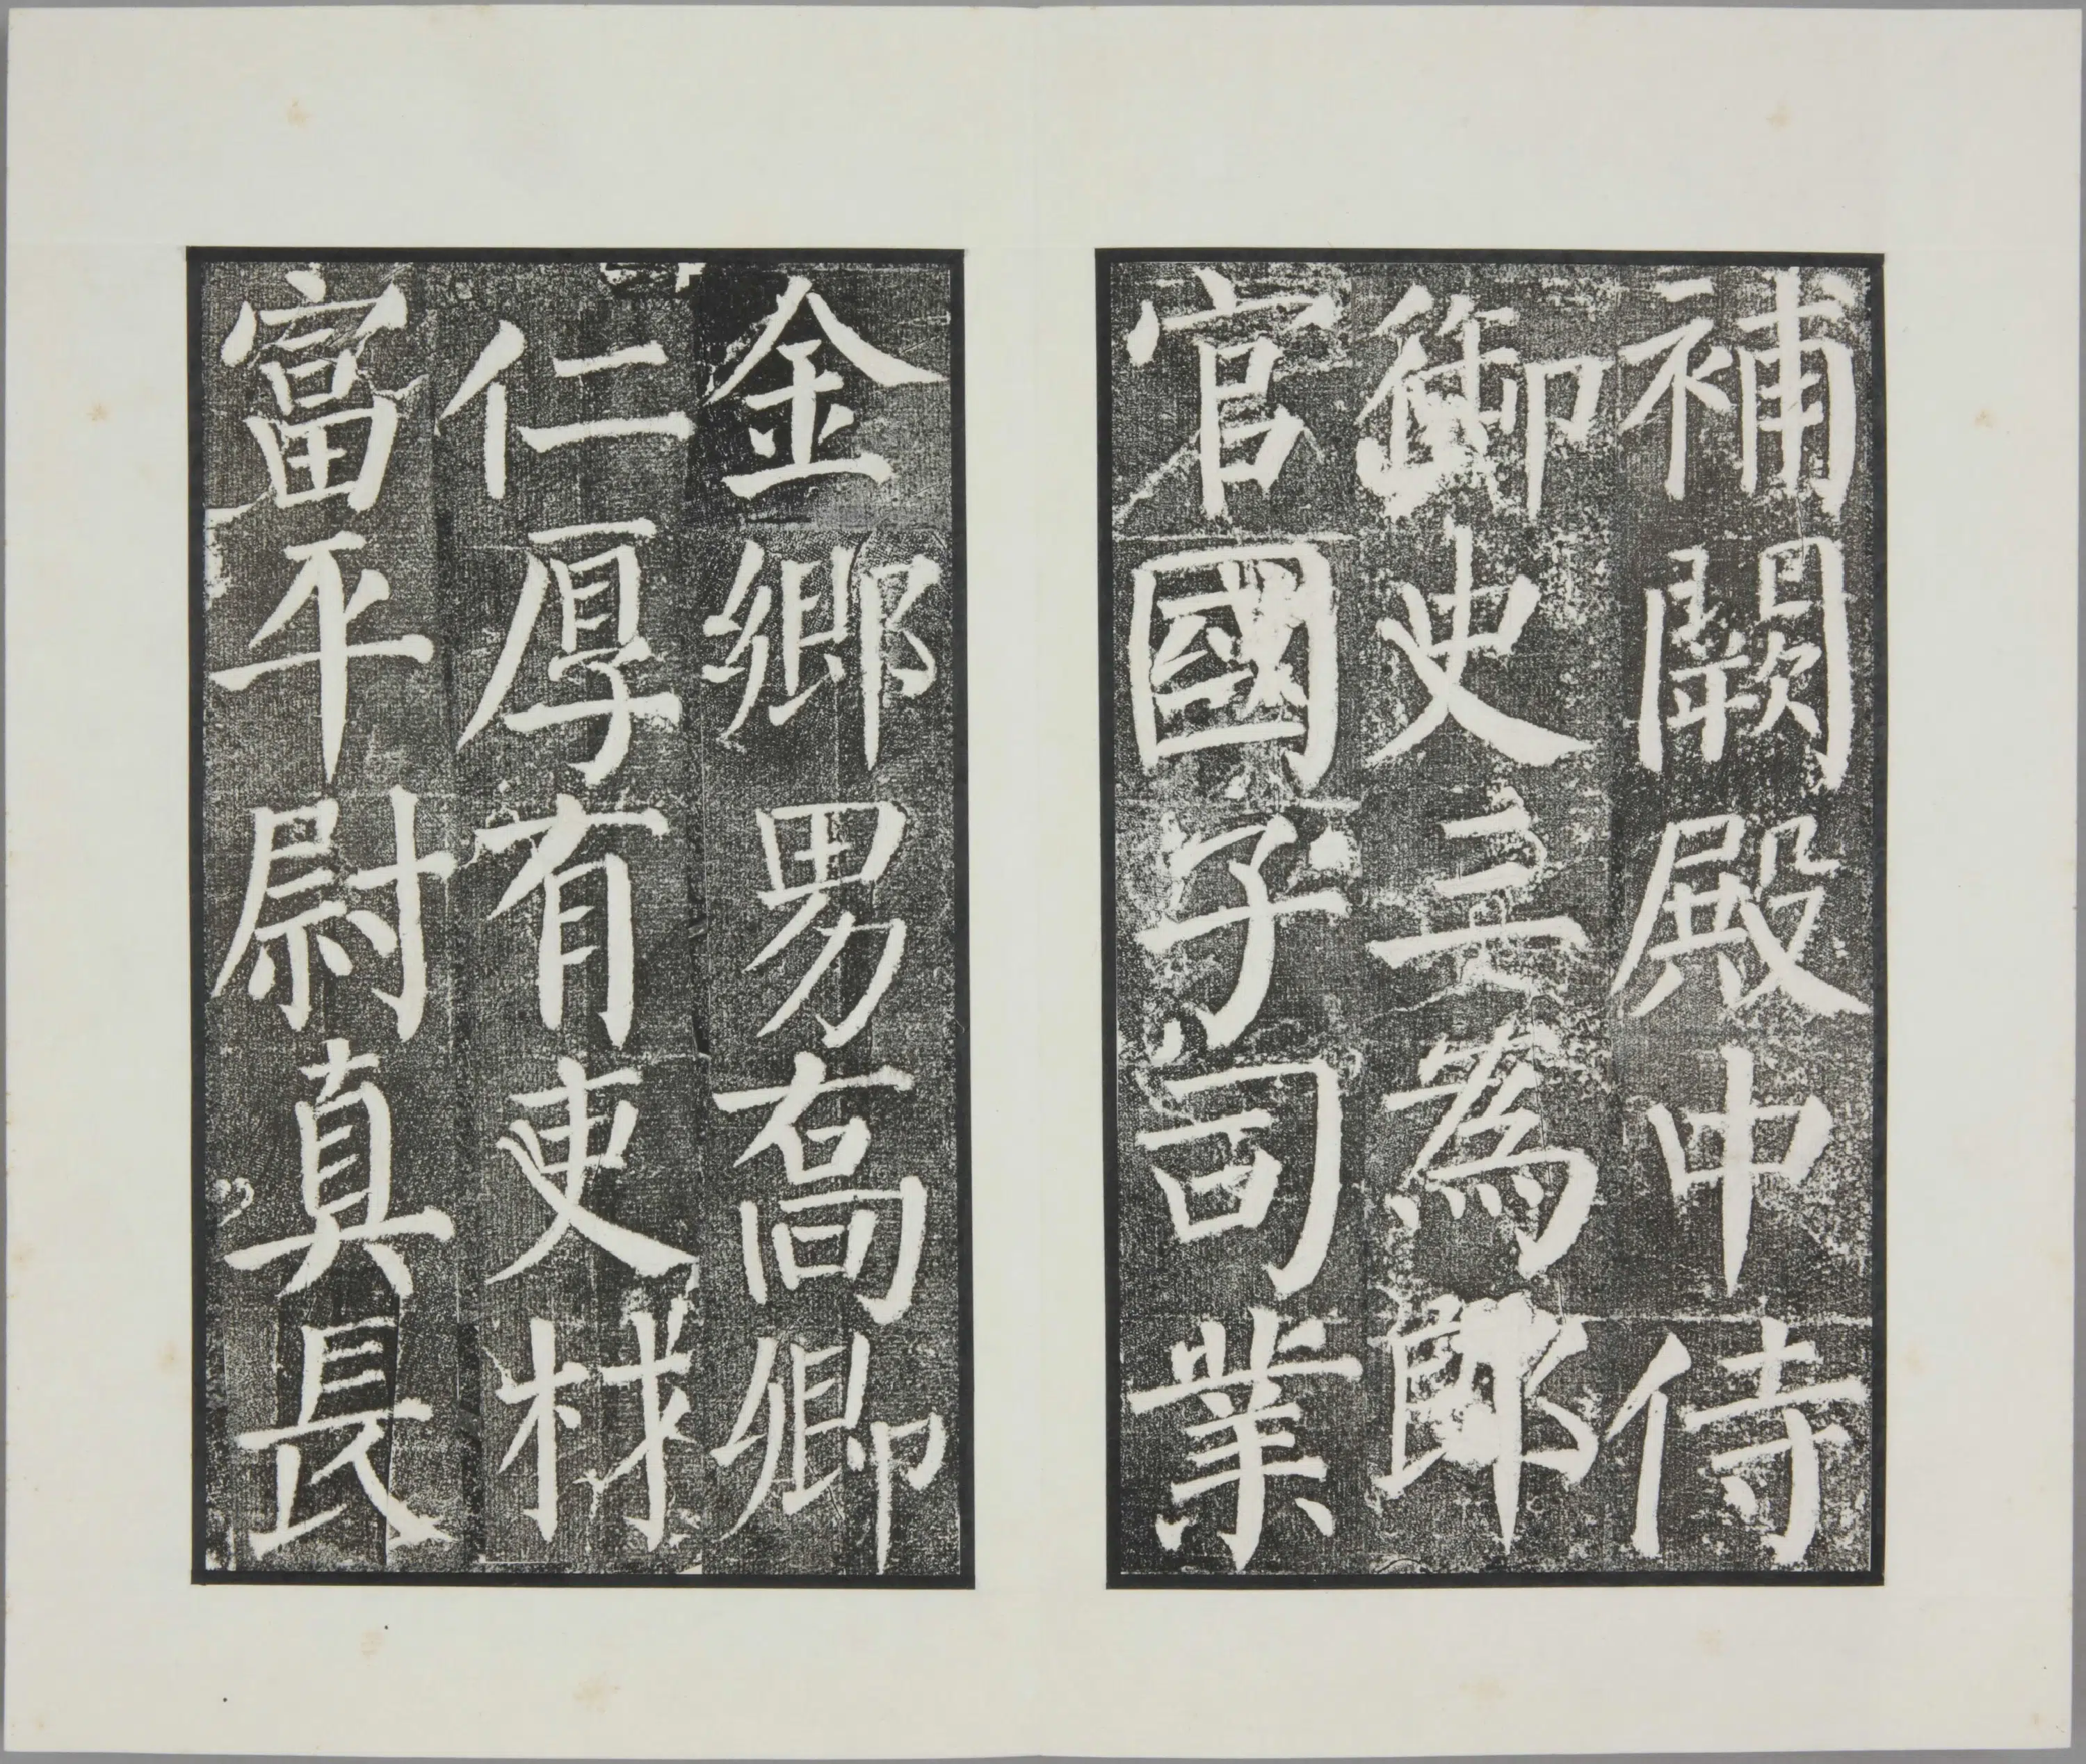 補闕殿中侍
御史三為郎
官國子司業
金鄉男喬卿
仁厚有吏材
富平尉真長